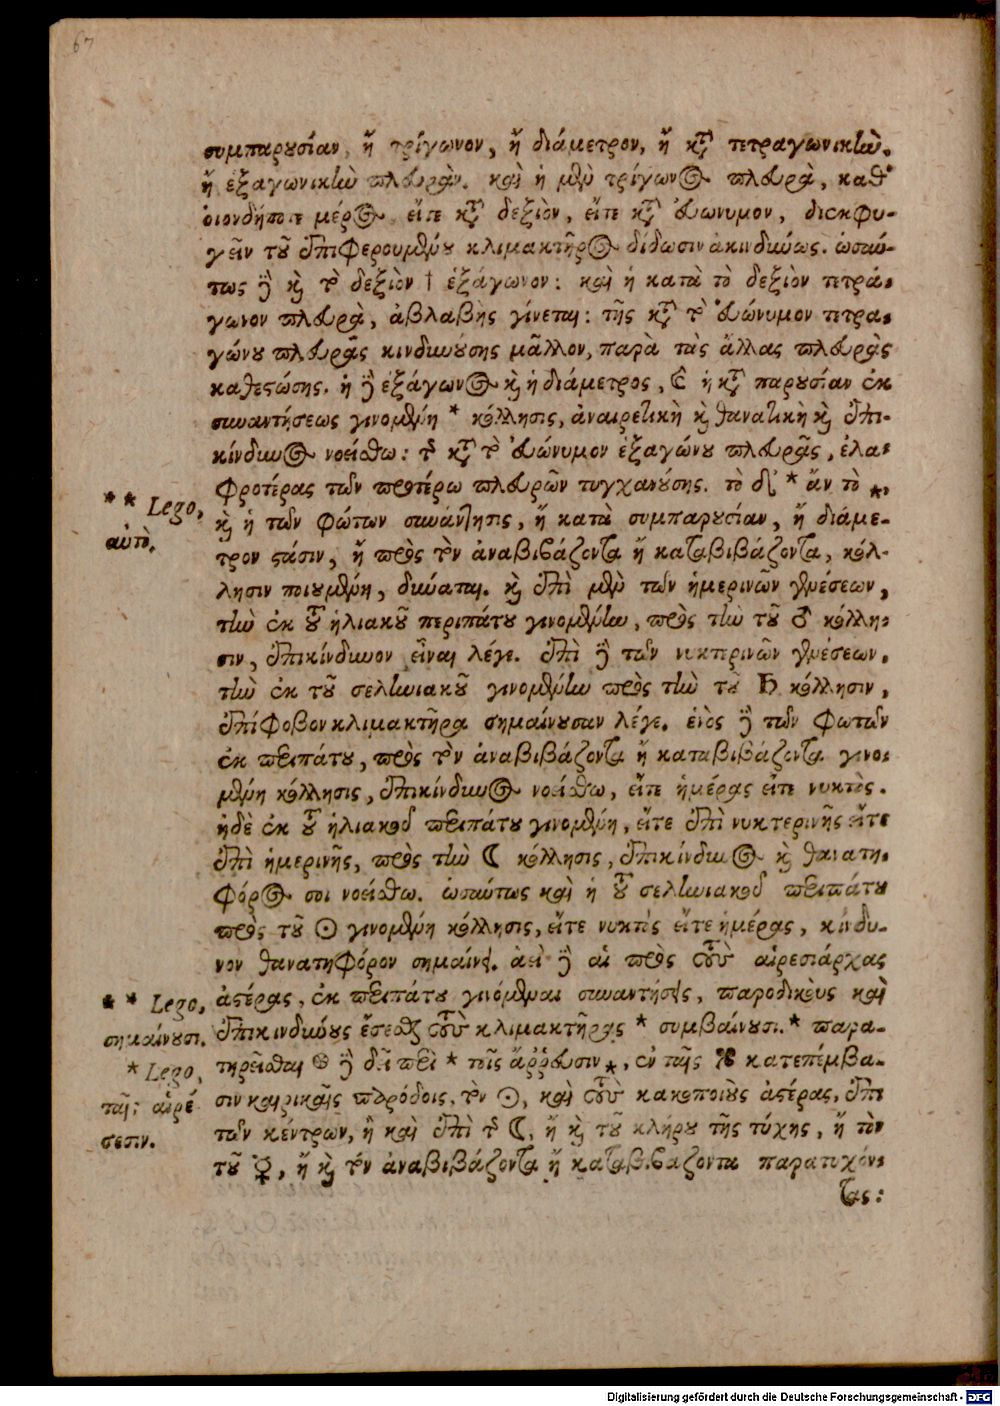 67
συμπαρουσίαν, ἢ τρίγωνον, ἢ διάμετρον, ἢ κατὰ τετραγωνικὴν.
ἢ ἑξαγωνικὴν πλευρὰν. καὶ ἡ μὲν τρίγωνος πλευρὰ, καθ'
οἱονδήποτε μέρος. εἴτε κατὰ δεξιὸν, εἴτε κατὰ εὐώνυμον, διεκφυ-
γεῖν τοῦ ἐπιφερουμένου κλιμακτῆρος δίδωσιν ἀκινδύνως. ὡσαύ-
τως δὲ καὶ τὸ δεξιὸν † ἑξάγωνον: καὶ ἡ κατὰ τὸ δεξιὸν τετρά-
γωνον πλευρὰ, ἀβλαβὴς γίνεται: τῆς κατὰ τὸ εὐώνυμον τετρα-
γώνου πλευρᾶς κινδυνούσης μᾶλλον, παρὰ τὰς ἄλλας πλευρὰς
καθεστώσης. ἡ δὲ ἑξάγωνος καὶ ἡ διάμετρος, καὶ ἡ κατὰ παρουσίαν ἐκ
συναντήσεως γινομένη * κόλλησις, ἀναιρετικὴ καὶ θανατικὴ καὶ ἐπι-
κίνδυνος νοείσθω: τῆς κατὰ τὸ εὐώνυμον ἑξαγώνου πλευρᾶς, ἐλα-
φροτέρας τῶν προτέρω πλευρῶν τυγχανούσης. τὸ δ' * ἂν τὸ *,
καὶ ἡ τῶν φώτων συνάντησις, ἢ κατὰ συμπαρουσίαν, ἢ διάμε-
τρον στάσιν, ἢ πρὸς τὸν ἀναβιβάζοντα ἢ καταβιβάζοντα, κόλ-
λησιν ποιουμένη, δύναται. καὶ ἐπὶ μὲν τῶν ἡμερινῶν γενέσεων,
τὴν ἐκ τοῦ ἡλιακοῦ περιπάτου γινομένην, πρὸς τὴν τοῦ ♂ κόλλη-
σιν, ἐπικίνδυνον εἶναι λέγε. ἐπὶ δὲ τῶν νυκτερινῶν γενέσεων.
τὴν ἐκ τοῦ σεληνιακοῦ γινομένην πρὸς τὴν τοῦ ♄ κόλλησιν,
ἐπίφοβον κλιμακτῆρα σημαίνουσαν λέγε. ἑνὸς δὲ τῶν φωτῶν
ἐκ περιπάτου, πρὸς τὸν ἀναβιβάζοντα ἢ καταβιβάζοντα γινο-
μένη κόλλησις, ἐπικίνδυνος νοείσθω, εἴτε ἡμέρας εἴτε νυκτὸς.
ἡδὲ ἐκ τοῦ ἡλιακοῦ περιπάτου γινομένη, εἴτε ἐπὶ νυκτερινῆς εἴτε
ἐπὶ ἡμερινῆς, πρὸς τὴν ☾ κόλλησις, ἐπικίνδυνος καὶ θανατη-
φόρος σοι νοείσθω. ὡσαύτως καὶ ἡ τοῦ σεληνιακοῦ περιπάτου
πρὸς τοῦ ☉ γινομένη κόλλησις, εἴτε νυκτὸς εἴτε ἡμέρας, κίνδυ-
νον θανατηφόρον σημαίνει. ἀεὶ δὲ αἱ πρὸς τοὺς αἱρεσιάρχας
ἀστέρας, ἐκ περιπάτου γινόμεναι συναντήσεις, παροδικοὺς καὶ
ἐπικινδύνους ἔσεσθαι τοὺς κλιμακτῆρας * συμβαίνουσι. * παρα-
τηρεῖσθαι δὲ δεῖ περὶ * τοῖς ἄῤῥεσιν *, ἐν ταῖς κατεπέμβα-
σιν καιρικαῖς παρόδοις, τὸν ☉, καὶ τοὺς κακοποιοὺς ἀστέρας, ἐπὶ
τῶν κέντρων, ἢ καὶ ἐπὶ τῆς ☾, ἢ καὶ τοῦ κλήρου τῆς τύχης, ἢ τὸν
τοῦ ☿, ἢ καὶ τὸν ἀναβιβάζοντα ἢ καταβιβάζοντα παρατυχόν-
τας:
* * Lego,
αὐτὸ.
* * Lego,
σημαίνουσι.
* Lego,
ταῖς αἱρέ
σεσιν.
Digitalisierung gefördert durch die Deutsche Forschungsgemeinschaft - DFG